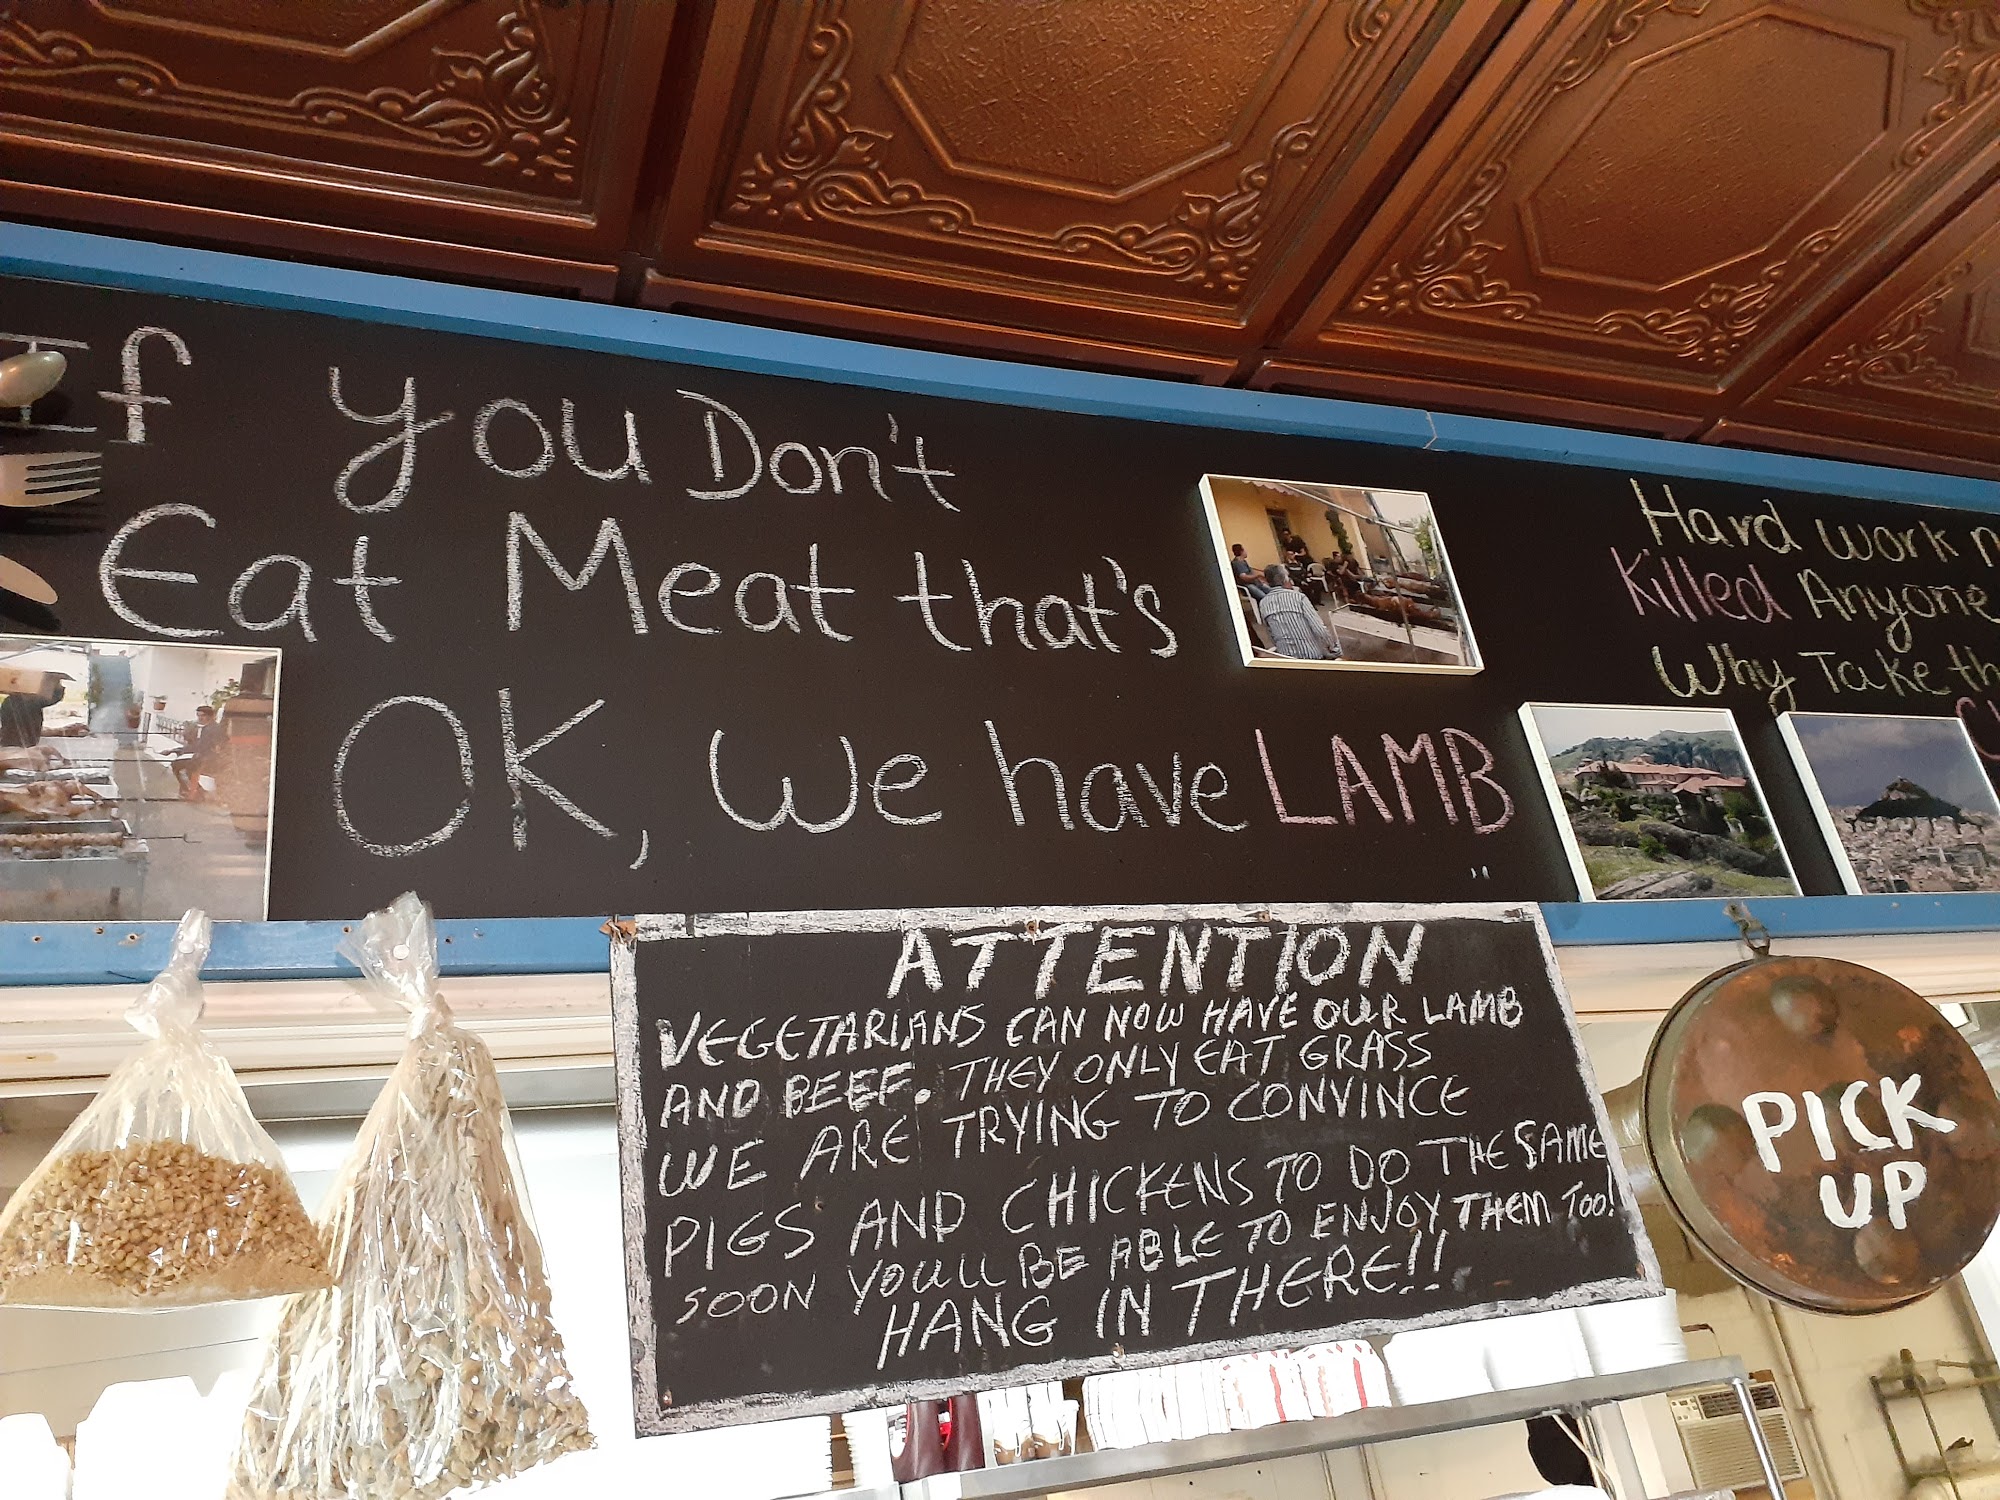 If you Don't
Eat Meat that's
OK, We have LAMB
Hard work
Killed Anyone
Why Take
ATTENTION
VEGETARIANS CAN NOW HAVE OUR LAMB
AND BEEF. THEY ONLY EAT GRASS
WE ARE TRYING TO CONVINCE
PIGS AND CHICKENS TO DO THE SAME
SOON YOULL BE ABLE TO ENJOY THEM TOO!
HANG IN THERE!!
PICK
UP